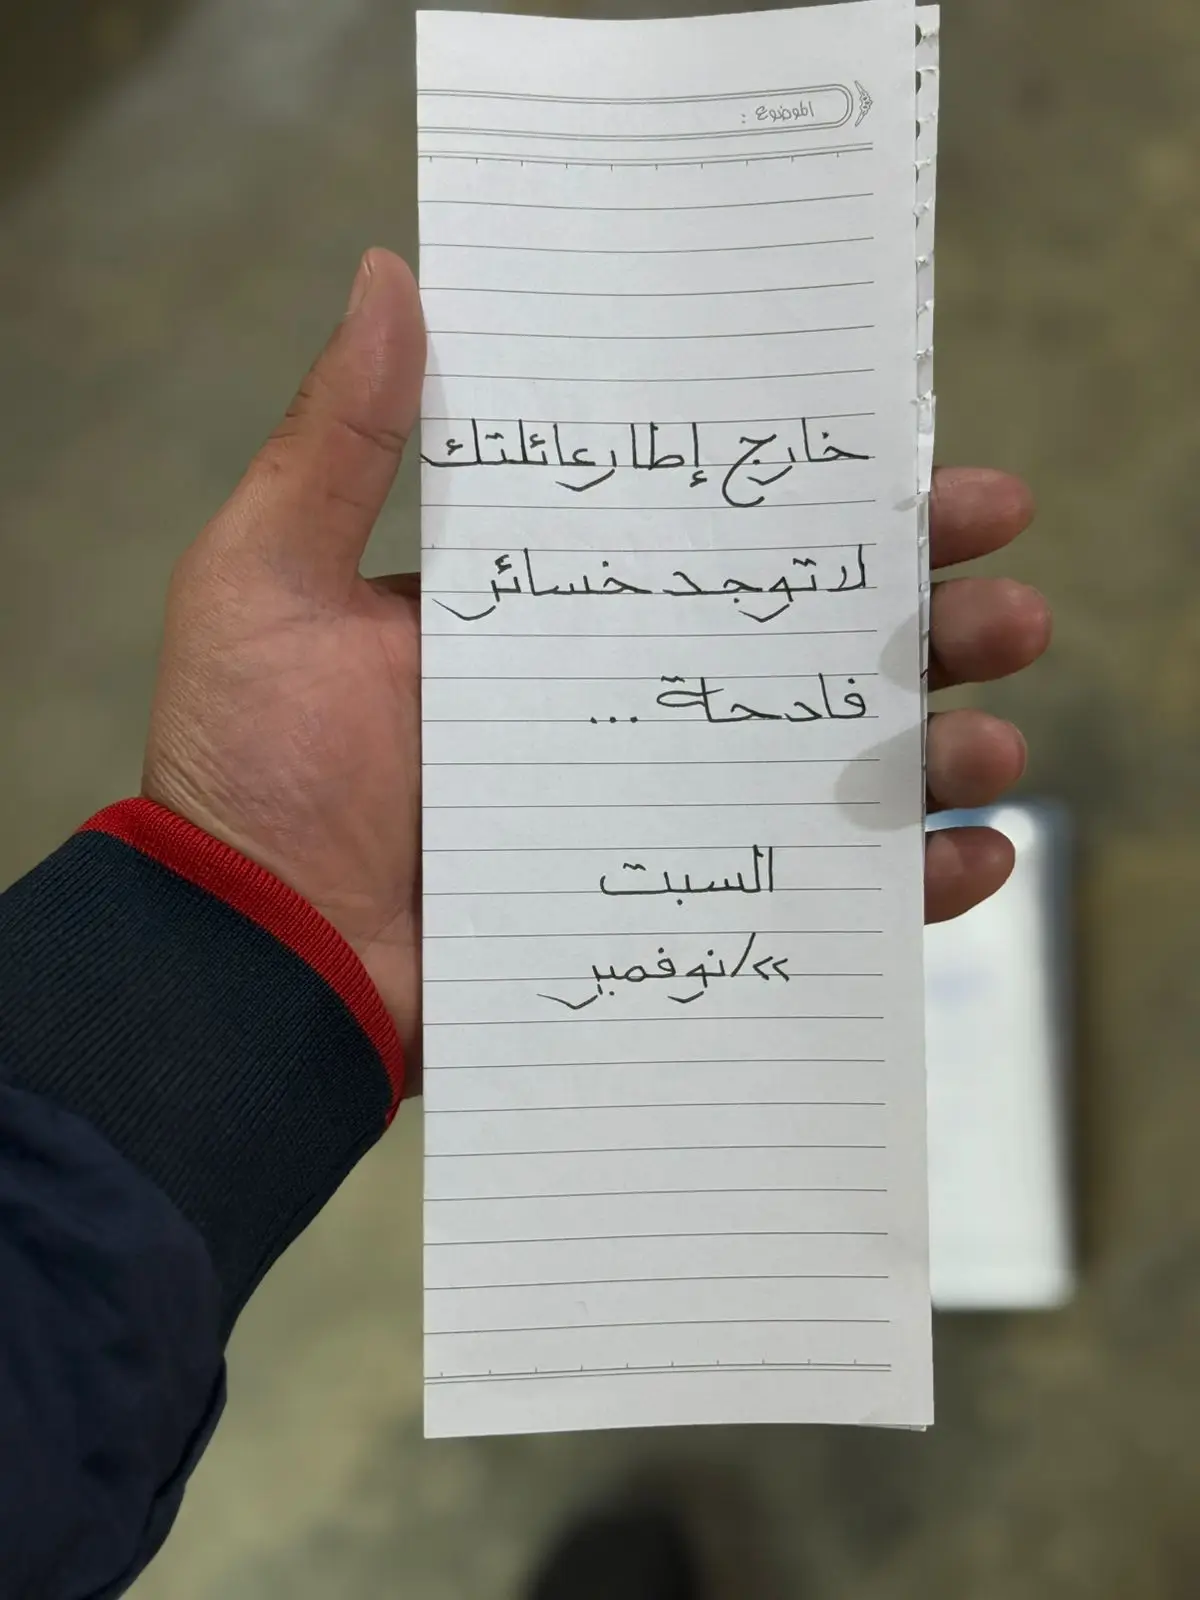 الموضوع :
خارج إطار عائلتك
لا توجد خسائر
فادحة ...
السبت
٢٢/نوفمبر